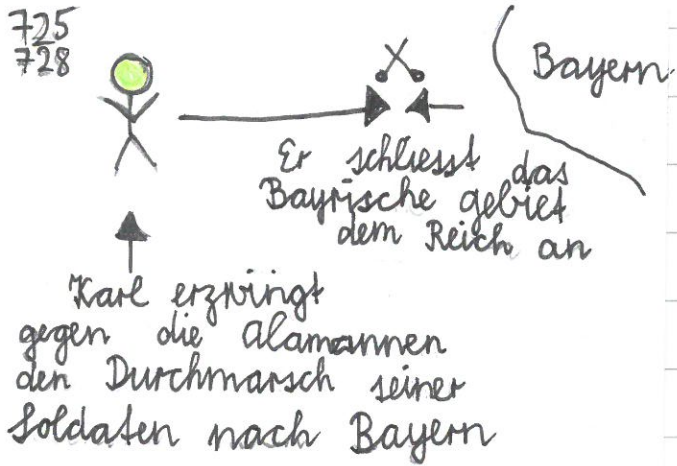 725
728
Bayern
Er schliesst das
Bayrische gebiet
dem Reich an
Karl erzwingt
gegen die Alamannen
den Durchmarsch seiner
Soldaten nach Bayern